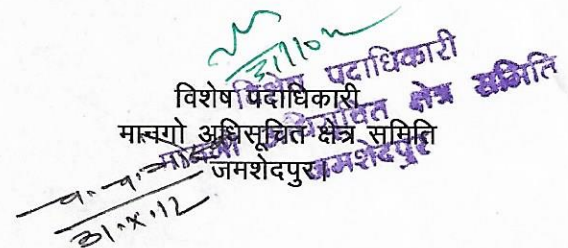 31/10
विशेष पदाधिकारी
मानगो अधिसूचित क्षेत्र समिति
जमशेदपुर।
विशेष पदाधिकारी
मानगो अधिसूचित क्षेत्र समिति
जमशेदपुर
31.X.12